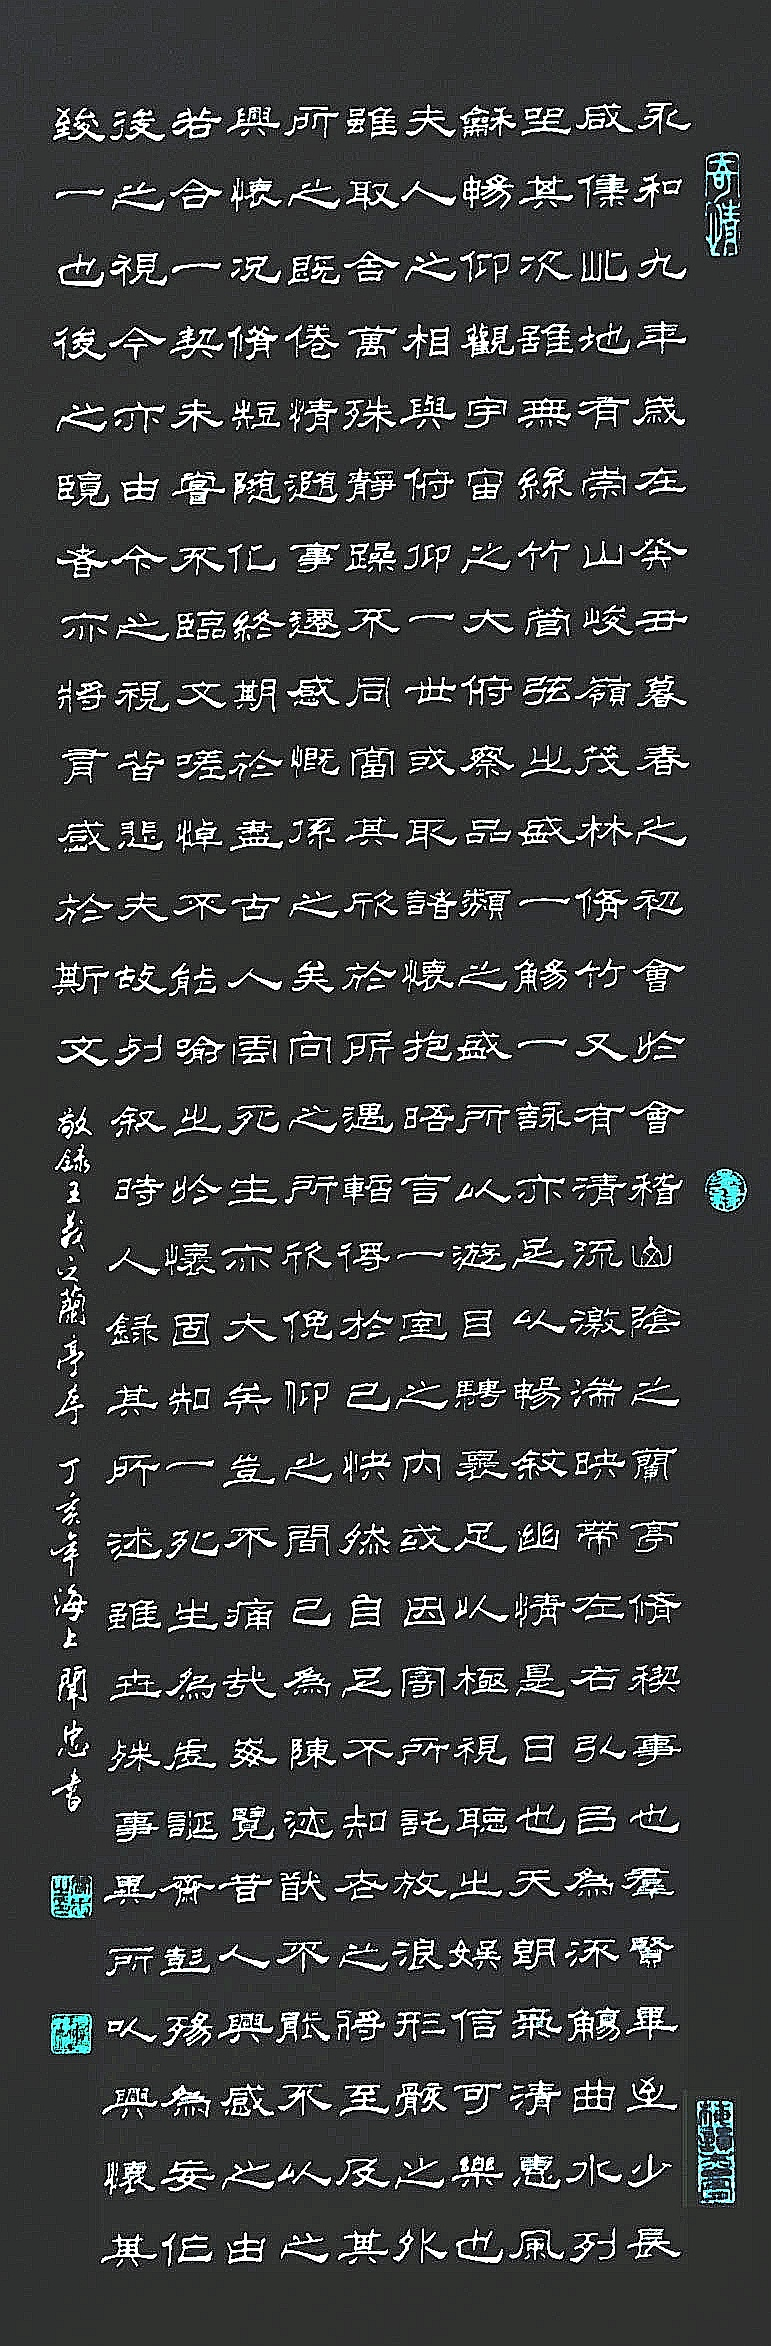 永和九年歲在癸丑暮春之初會於會稽山陰之蘭亭脩稧事也羣賢畢至少長
咸集此地有崇山峻嶺茂林脩竹又有清流激湍映帶左右引以為流觴曲水列
坐其次雖無絲竹管弦之盛一觴一詠亦足以暢敘幽情是日也天朗氣清惠風
龢暢仰觀宇宙之大俯察品類之盛所以遊目騁懷足以極視聽之娛信可樂也
夫人之相與俯仰一世或取諸懷抱晤言一室之內或因寄所託放浪形骸之外
雖取舍萬殊靜躁不同當其欣於所遇暫得於己快然自足不知老之將至及其
所之既倦情隨事遷感慨係之矣向之所欣俛仰之間已為陳迹猶不能不以之
興懷況脩短隨化終期於盡古人雲死生亦大矣豈不痛哉每覽昔人興感之由
若合一契未嘗不臨文嗟悼不能喻之於懷固知一死生為虛誕齊彭殤為妄作
後之視今亦由今之視昔悲夫故列叙時人錄其所述雖世殊事異所以興懷其
致一也後之覽者亦將有感於斯文 敬錄王羲之蘭亭序 丁亥年海上聞忠書
奇情